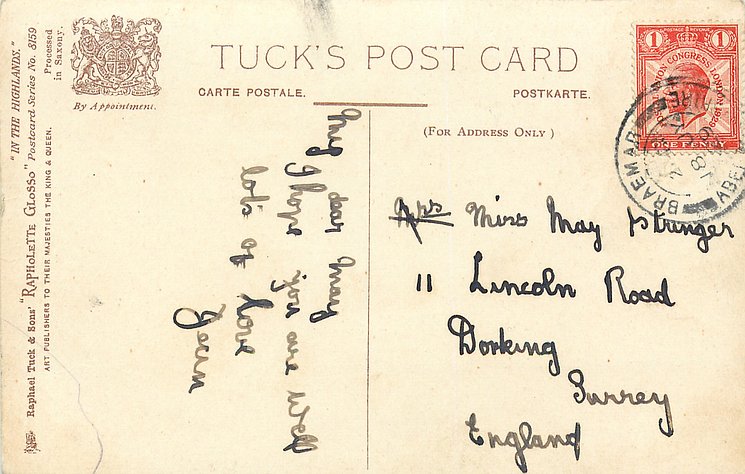 "IN THE HIGHLANDS."
Raphael Tuck & Sons' "RAPHOLETTE GLOSSO" Postcard Series No. 8159
ART PUBLISHERS TO THEIR MAJESTIES THE KING & QUEEN.
Processed
in Saxony.
By Appointment.
TUCK'S POST CARD
CARTE POSTALE.
POSTKARTE.
(FOR ADDRESS ONLY)
My dear May
I hope you are well
lots of love
Jean
Mrs Miss May Stranger
11 Lincoln Road
Dorking
Surrey
England
1 POSTAGE REVENUE 1
POSTAL UNION CONGRESS LONDON 1929
ONE PENNY
BRAEMAR